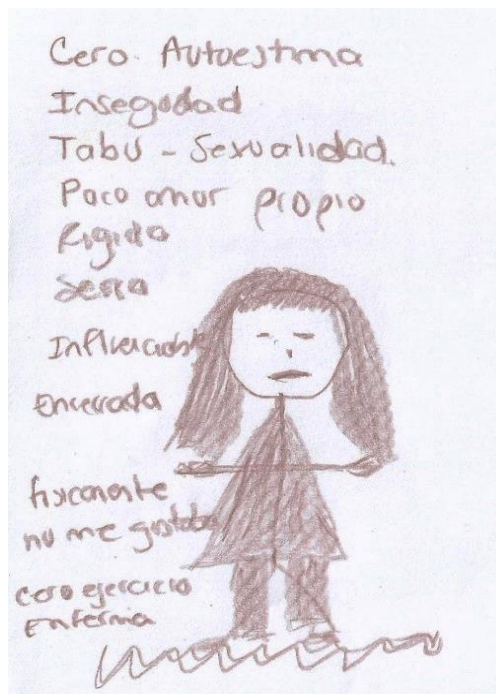 Cero. Autoestima
Insegudad
Tabú - Sexualidad.
Poco amor propio
Rigida
Seria
Influenciable
Encerrada
fisicamente
no me gustaba
cero ejercicio
Enferma